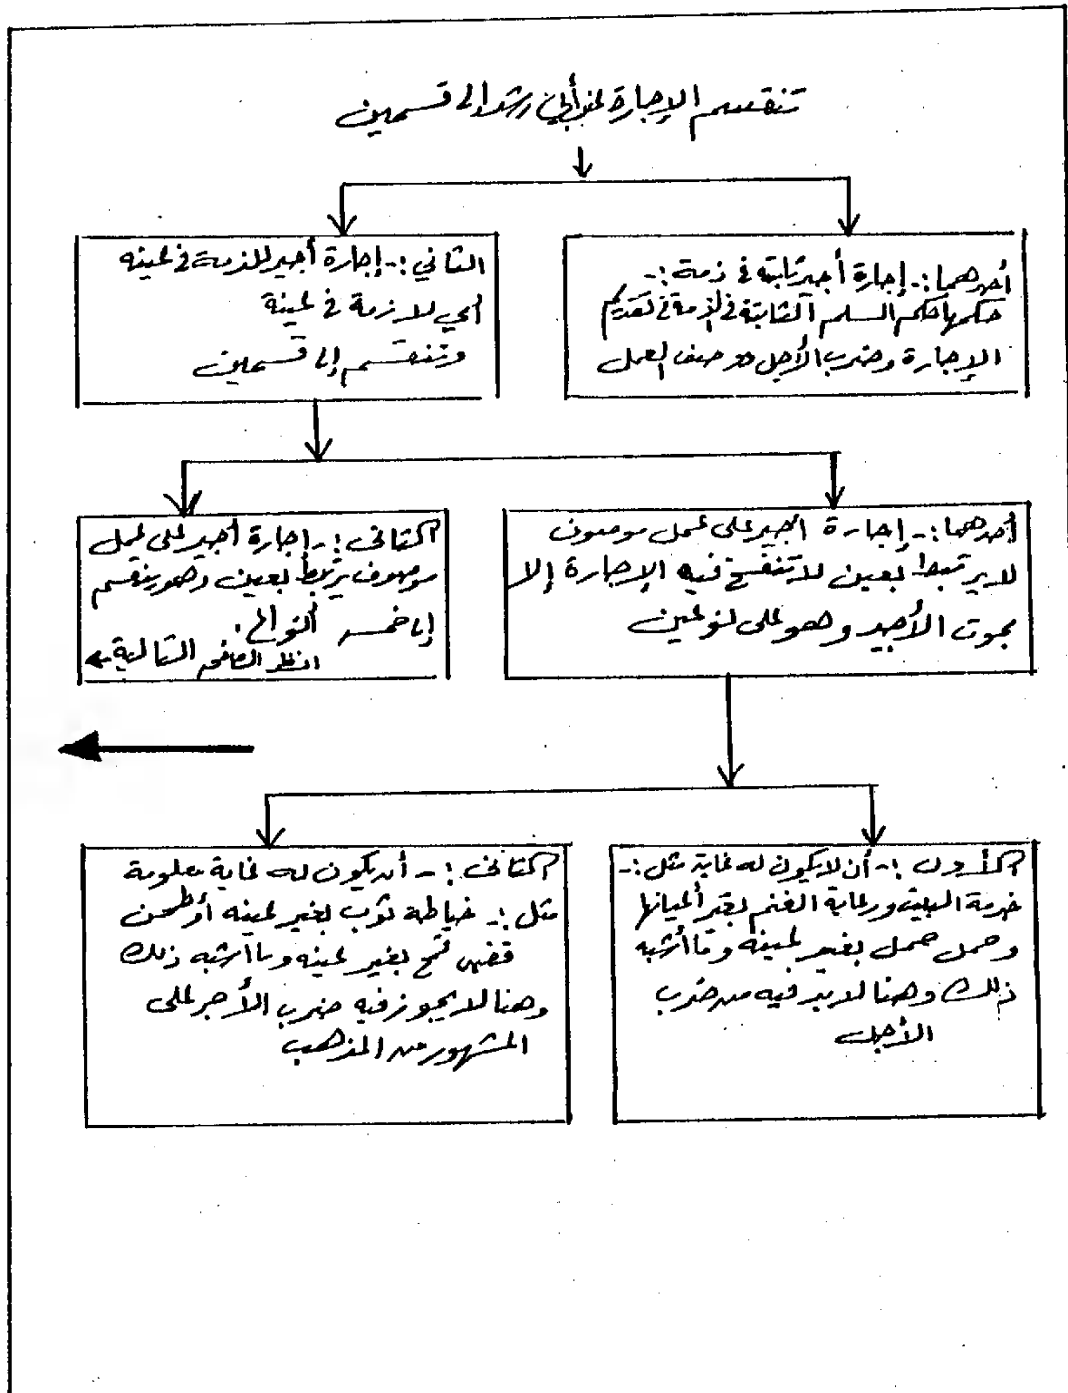 تنقسم الإجارة عند ابن رشد إلى قسمين
أحدهما :- إجارة أجير ثابتة في ذمة :-
حكمها حكم السلم الثابتة في الذمة في تقديم
الإجارة وضرب الأجل ووصف العمل
الثاني :- إجارة أجير للذمة في عينه
أي لازمة في عينة
وتنقسم إلى قسمين
أحدهما :- إجارة أجير على عمل موصوف
لا يرتبط بعين لا تنفسخ فيه الإجارة إلا
بموت الأجير وهو على نوعين
الثاني :- إجارة أجير على عمل
موصوف يرتبط بعين وهو ينقسم
إلى خمسة أنواع.
انظر الصفحة التالية ←
الأول :- أن لا يكون له غاية مثل :-
خدمة البيت ورعاية الغنم بغير أعيانها
وحمل حمل بغير عينه وما أشبه
ذلك وهنا لا بد فيه من ضرب
الأجل
الثاني :- أن يكون له غاية معلومة
مثل :- خياطة ثوب بغير عينه أو طحن
قمح بغير عينه وما أشبه ذلك
وهنا لا يجوز فيه ضرب الأجر على
المشهور من المذهب